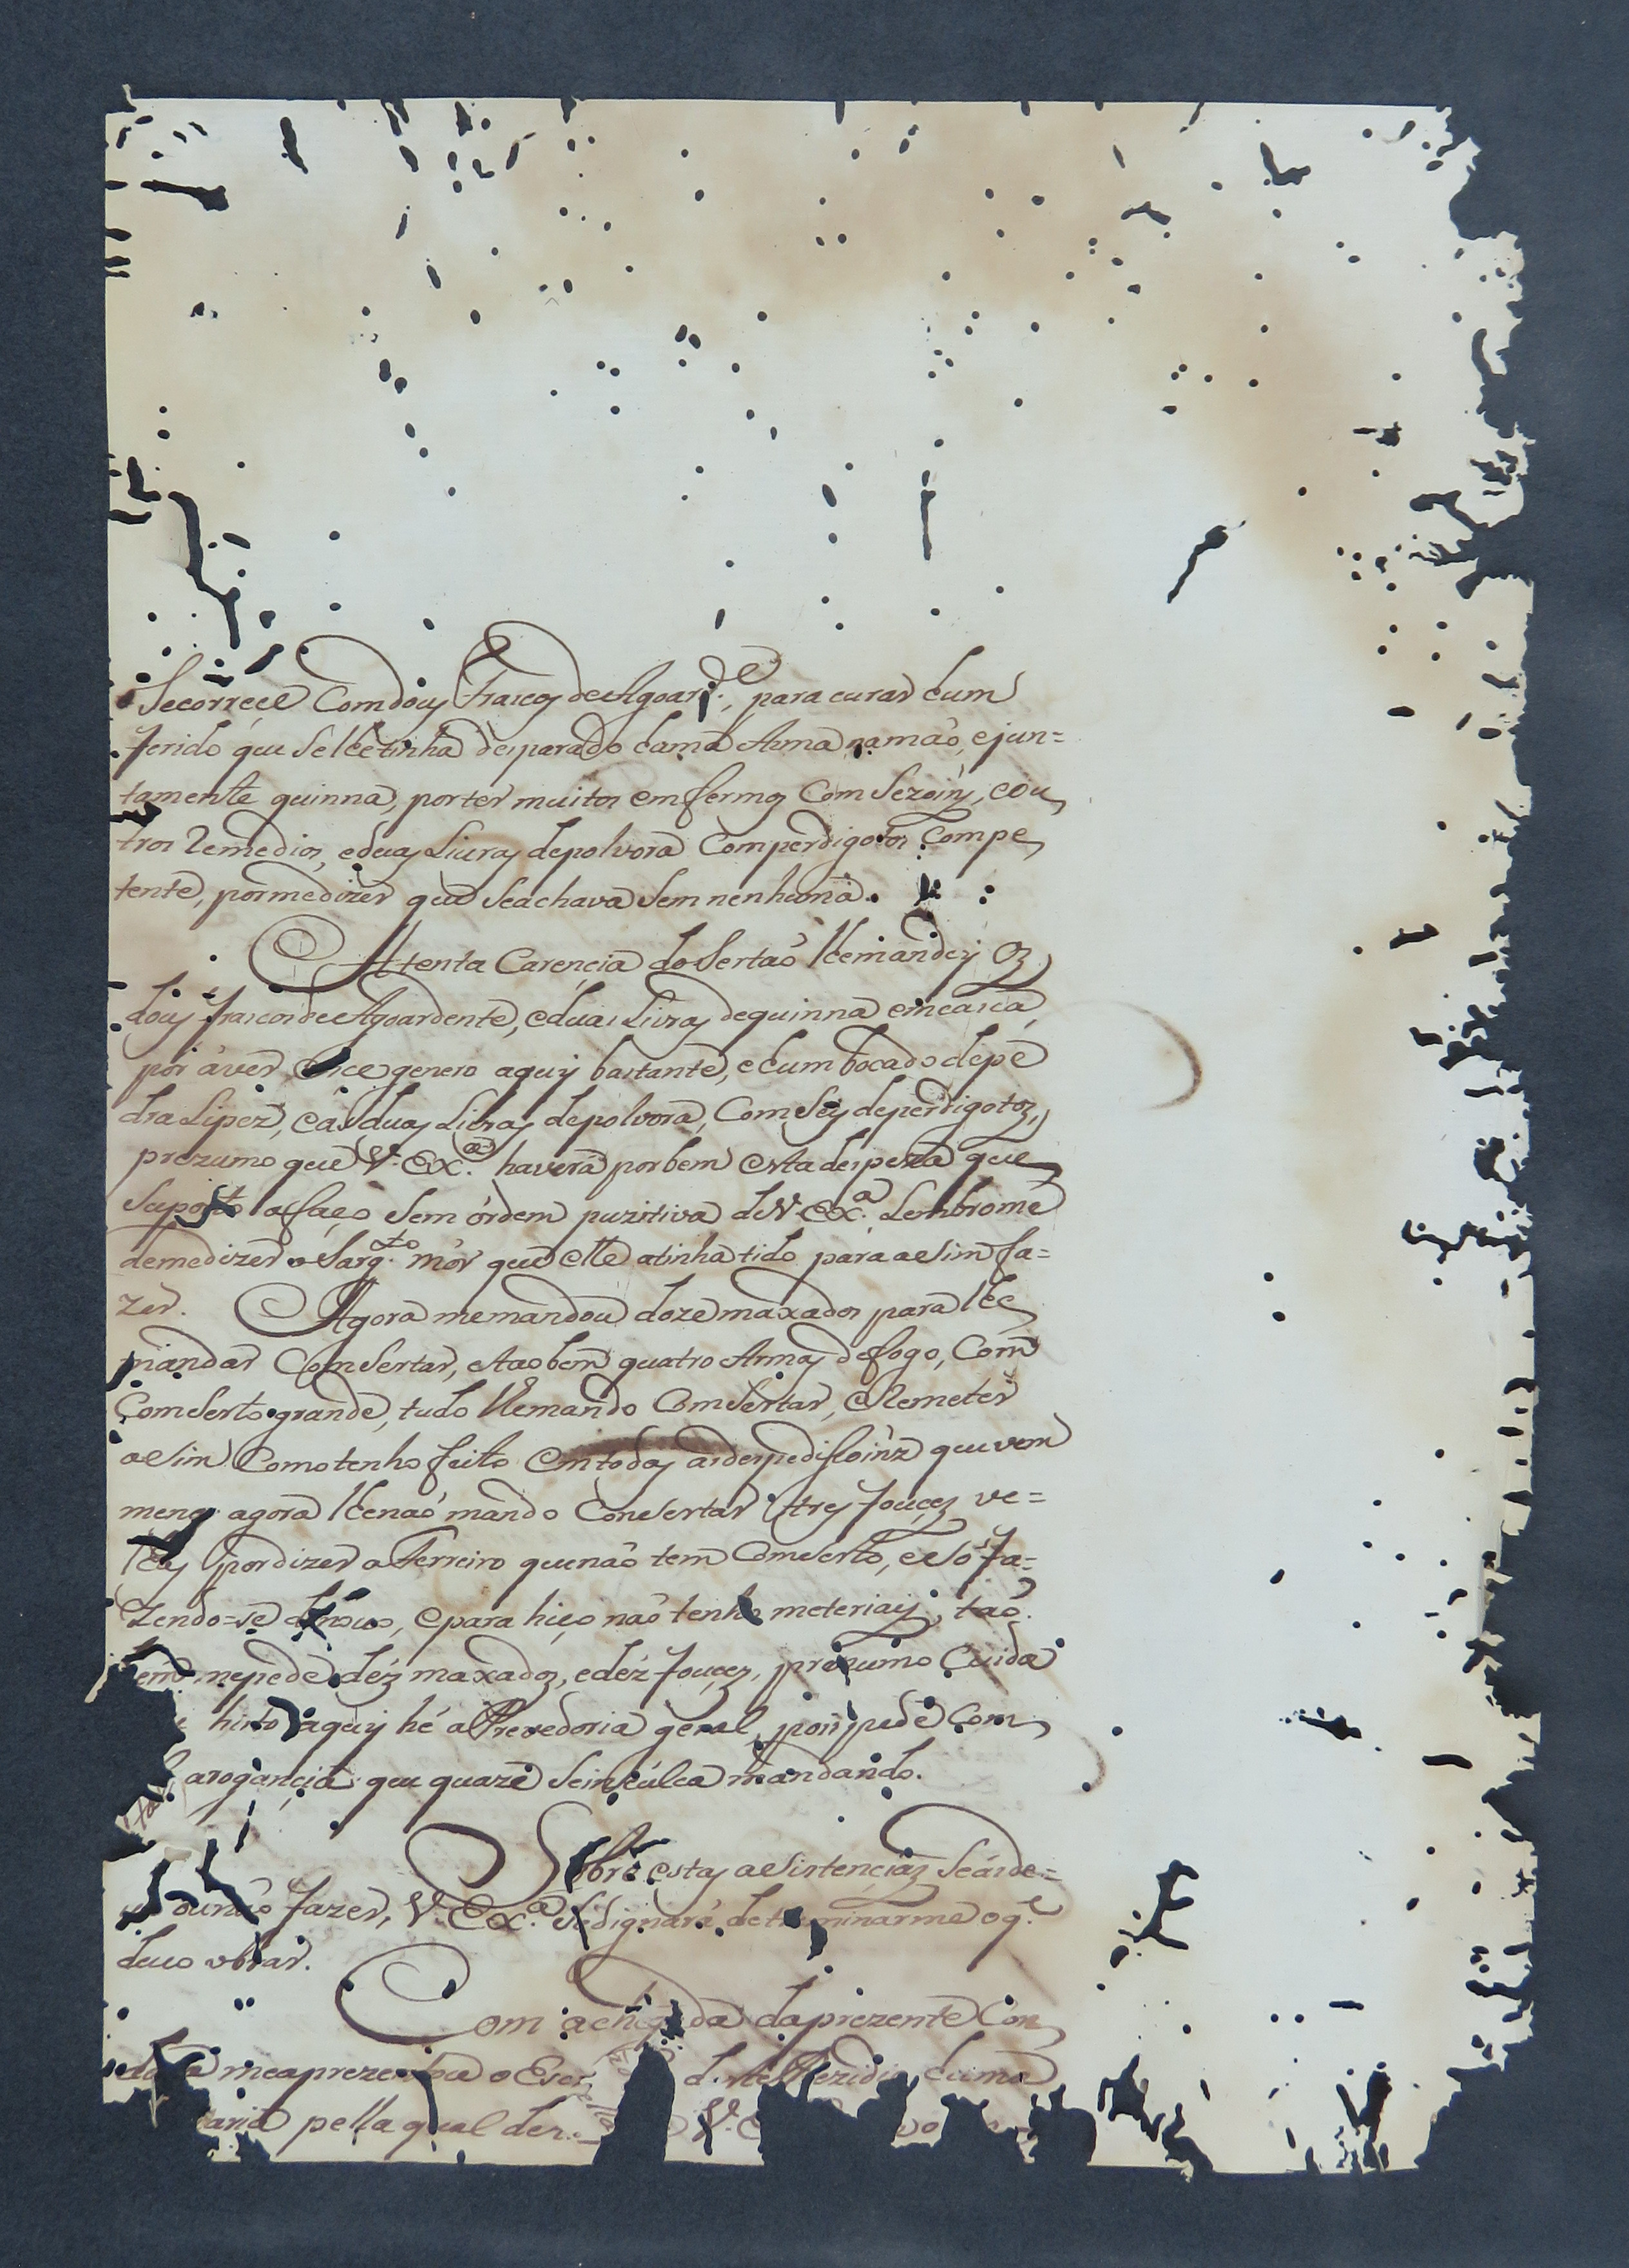 Secorrece Comdouy Frascoz deAgoard.e, para curar hum
ferido que selhetinha desparado hama Arma namão, ejun=
tamente quinna, porter muitos emfermoz Com Sezoiny, eou
tros Remedios, eduay Liuray depolvora Comperdigotos Compe
tente, pormedizer que seachava sem nenhuma.
Attenta Carencia do Sertaõ lhemandey oz
douy frascos de Agoardente, eduas Livray dequinna emcasca,
por àver esce genero aquy bastante, ehum bocado depe
dra Lipez, eas duay Libray depolvora, Com Sey deperdigotoz,
prezumo que V. Ex.a haverá porbem esta despeza que
Suposto afaço sem òrdem puzitiva deV. Ex.a Lembrome
demedizer o Sarg.to mòr que elle atinha tido para asim fa=
zer. Agora memandou doze maxados para lhe
mandar Comsertar, etaobem quatro Armay defogo, Com
Comserto grande, tudo lhemando Comsertar, eRemeter
asim Comotenho feito emtoday asdespedisoinz quevem
menos agora lhenaõ mando Consertar trey fouçez ve=
lhay por dizer o Ferreiro quenão tem Comserto, esó fa=
zendo=se denovo, epara hiço não tenho meteriay, tao
bem mepede déz maxadoz, edéz fouçez, prezumo Cuida
histo aquy hé aProvedoria geral, pois pede Com
tal arogancia que quaze seinculca mandando.
Sobre estay asistenciaz Seàsde=
ounão fazer, V. Ex.a sedignará determinarme oq.e
devo obrar.
Com achegada daprezente Con
meaprezentou o deste Prezidio huma
pella qual